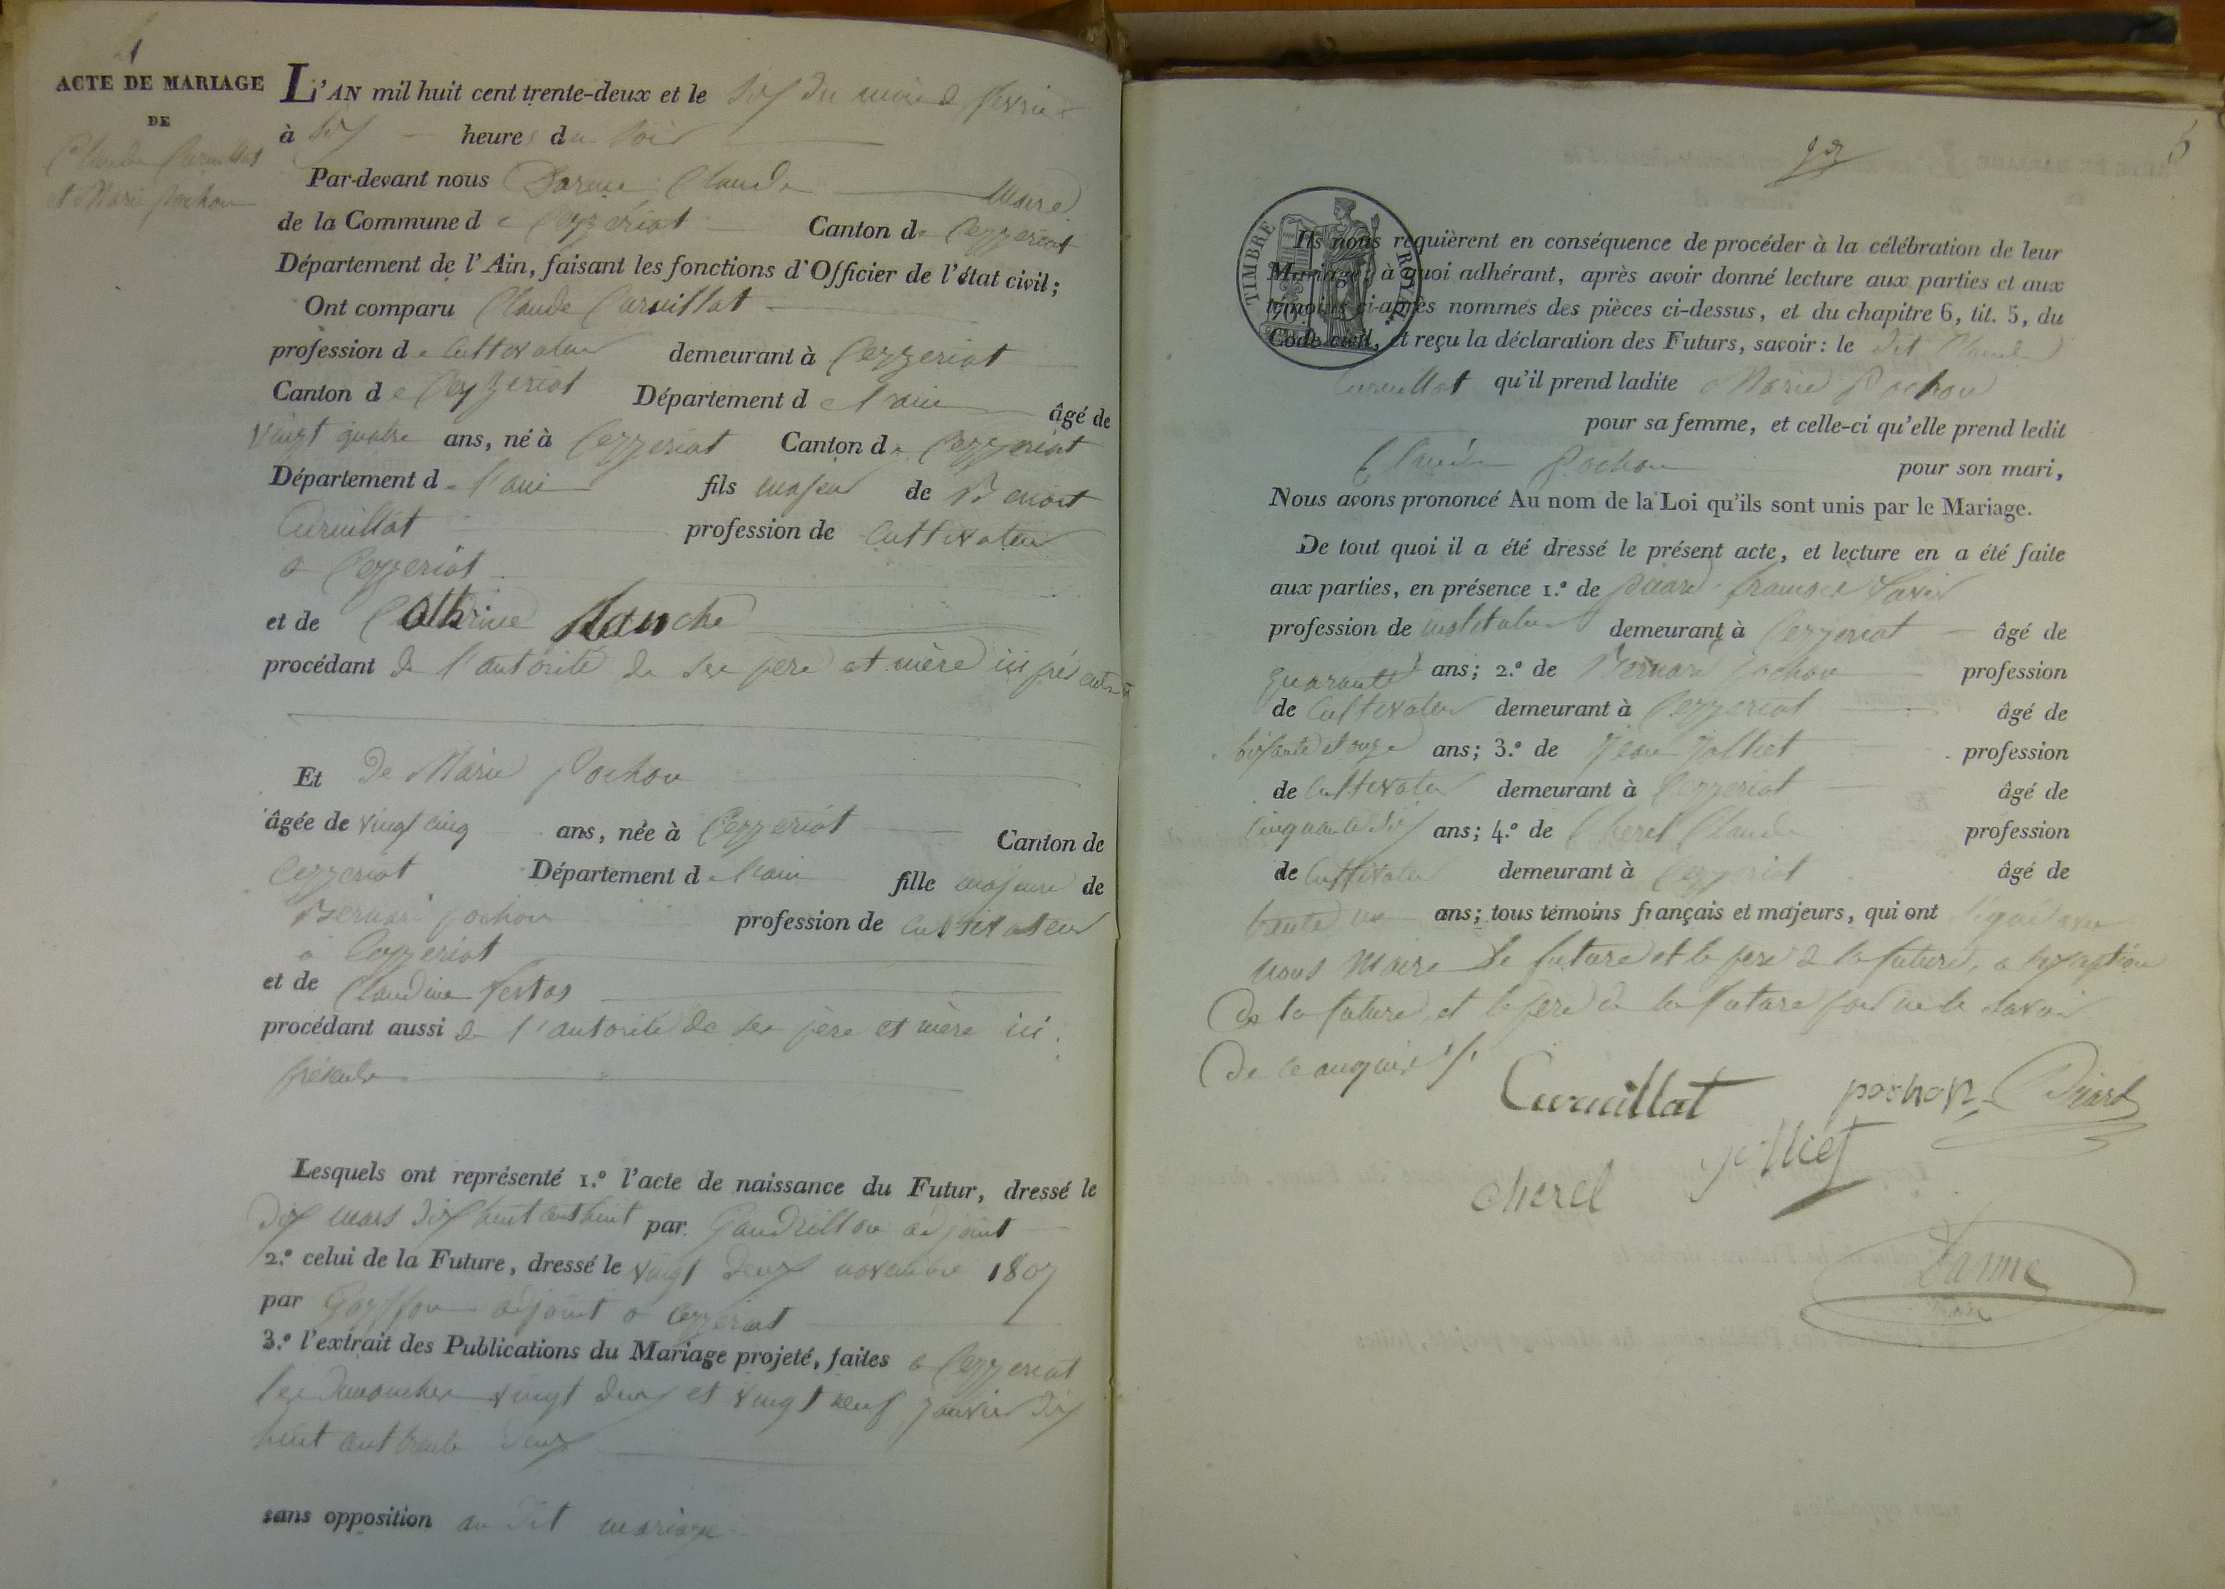 1
ACTE DE MARIAGE
DE
Claude Curnillat
et Marie Pochon
L'AN mil huit cent trente-deux et le six du mois de février
à six heures du soir
Par-devant nous Darme Claude Maire
de la Commune de Ceyzeriat Canton de Ceyzeriat
Département de l'Ain, faisant les fonctions d'Officier de l'état civil;
Ont comparu Claude Curnillat
profession de Cultivateur demeurant à Ceyzeriat
Canton de Ceyzeriat Département de l'ain âgé de
Vingt quatre ans, né à Ceyzeriat Canton de Ceyzeriat
Département de l'ain fils majeur de Benoit
Curnillat profession de Cultivateur
a Ceyzeriat
et de Catherine Blanche
procédant de l'autorité de ses père et mère ici présents
Et De Marie Pochon
âgée de vingt cinq ans, née à Ceyzeriat Canton de
Ceyzeriat Département de l'ain fille majeure de
Bernard pochon profession de Cultivateur
a Ceyzeriat
et de Claudine
procédant aussi de l'autorité de ses père et mère ici
présents
Lesquels ont représenté 1.º l'acte de naissance du Futur, dressé le
dix mars dix huit cent huit par Gaudrillon adjoint
2.º celui de la Future, dressé le vingt deux novembre 1807
par adjoint a Ceyzeriat
3.º l'extrait des Publications du Mariage projeté, faites a Ceyzeriat
les dimanches vingt deux et vingt neuf janvier dix
huit cent trente deux
sans opposition au dit mariage
6
TIMBRE ROYAL
Ils nous requièrent en conséquence de procéder à la célébration de leur
Mariage; à quoi adhérant, après avoir donné lecture aux parties et aux
témoins ci-après nommés des pièces ci-dessus, et du chapitre 6, tit. 5, du
Code civil, et reçu la déclaration des Futurs, savoir: le dit Claude
Curnillat qu'il prend ladite Marie Pochon
pour sa femme, et celle-ci qu'elle prend ledit
Claude Pochon pour son mari,
Nous avons prononcé Au nom de la Loi qu'ils sont unis par le Mariage.
De tout quoi il a été dressé le présent acte, et lecture en a été faite
aux parties, en présence 1.º de picard françois Xavier
profession de instituteur demeurant à Ceyzeriat âgé de
quarante ans; 2.º de Bernard Pochon profession
de Cultivateur demeurant à Ceyzeriat âgé de
soixante et onze ans; 3.º de Jean Jolliet profession
de Cultivateur demeurant à Ceyzeriat âgé de
Cinquante dix ans; 4.º de Cherel Claude profession
de Cultivateur demeurant à Ceyzeriat âgé de
trente ans; tous témoins français et majeurs, qui ont signé avec
nous Maire le future et le pere de la future, a l'exception
De la future, et le père de la future pour ne le savoir
De ce enquis
Curnillat pochon Picard
Cherel jolliet
Darme
Maire